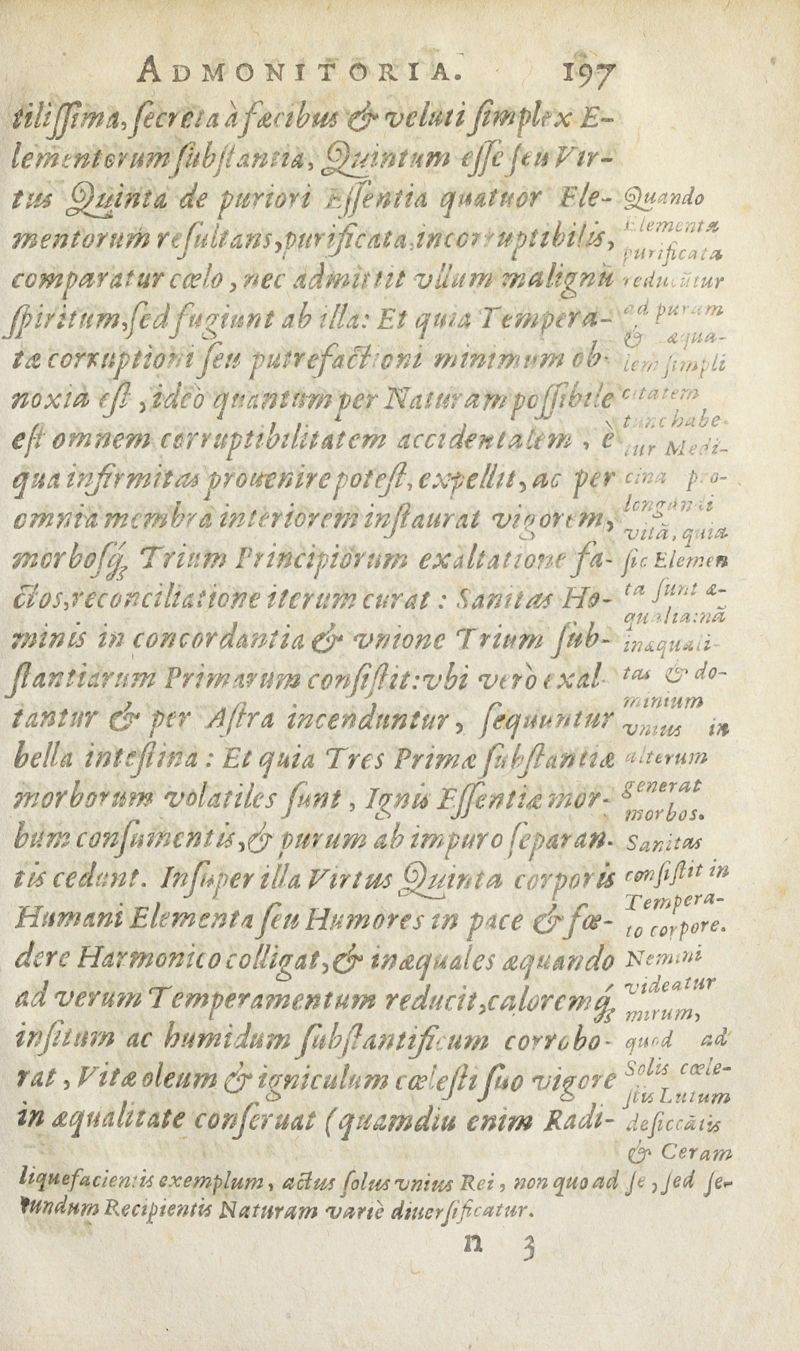 ADMONITORIA. 197
tilissima, secreta à fæcibus & veluti simplex E-
lementorum substantia, Quintum esse seu Vir-
tus Quinta de puriori Essentia quatuor Ele-
mentorum resultans, purificata, incorruptibilis,
comparatur cœlo, nec admittit vllum malignū
spiritum, sed fugiunt ab illa: Et quia Tempera-
ta corruptioni seu putrefactioni minimum ob-
noxia est, ideò quantum per Naturam possibile
est omnem corruptibilitatem accidentalem, è
qua infirmitas prouenire potest, expellit, ac per
omnia membra interiorem instaurat vigorem,
morbosq́; Trium Principiorum exaltatione fa-
ctos, reconciliatione iterum curat: Sanitas Ho-
minis in concordantia & vnione Trium sub-
stantiarum Primarum consistit: vbi verò exal-
tantur & per Astra incenduntur, sequuntur
bella intestina: Et quia Tres Primæ substantiæ
morborum volatiles sunt, Ignis Essentiæ mor-
bum consumentis, & purum ab impuro separan-
tis cedunt. Insuper illa Virtus Quinta corporis
Humani Elementa seu Humores in pace & fœ-
dere Harmonico colligat, & inæquales æquando
ad verum Temperamentum reducit, caloremq́;
insitum ac humidum substantificum corrobo-
rat, Vitæ oleum & igniculum cœlesti suo vigore
in æqualitate conseruat (quamdiu enim Radi-
Quando
Elementa
purificata
reducūtur
ad puram
& æqua-
lem simpli
citatem
tunc habe-
tur Medi-
cina pro-
longandi
vitā, quia
sic Elemen
ta sunt æ-
qualia: nā
inæquali-
tas & do-
minium
vnius in
alterum
generat
morbos.
Sanitas
consistit in
Tempera-
to corpore.
Nemini
videatur
mirum,
quod ad
Solis cœle-
stis Lutum
desiccātis
& Ceram
liquefacientis exemplum, actus solus vnius Rei, non quo ad se, sed se-
cundum Recipientis Naturam variè diuersificatur.
n 3